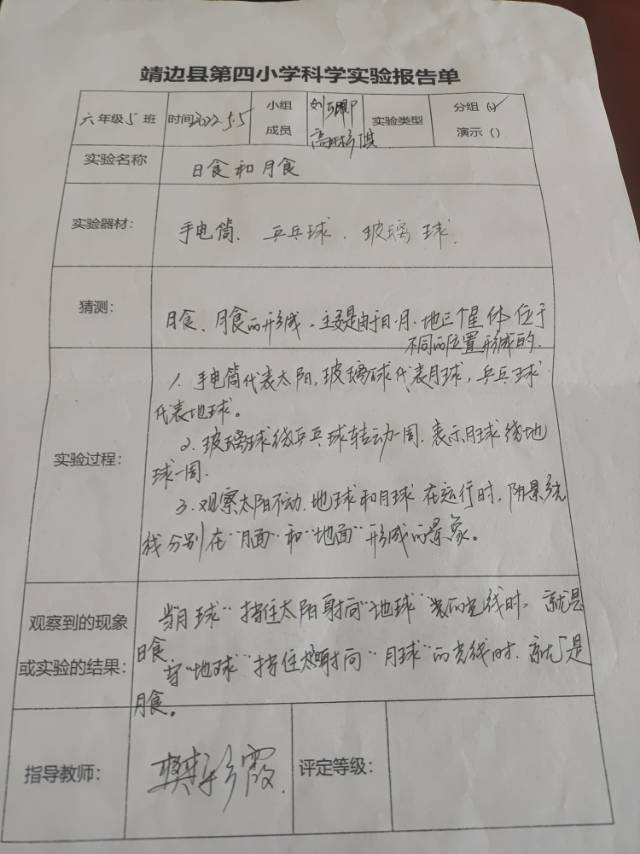 靖边县第四小学科学实验报告单
六年级5班 时间2022.5.5 小组成员 实验类型 分组(√) 演示()
实验名称 日食和月食
实验器材: 手电筒、乒乓球、玻璃球.
猜测: 日食、月食的形成,主要是由于日.月.地三个星体位于
不同的位置形成的.
实验过程: 1. 手电筒代表太阳,玻璃球代表月球,乒乓球
代表地球。
2.玻璃球绕乒乓球转动一周.表示月球绕地
球一周.
3.观察太阳不动.地球和月球在运行时,阴景
线分别在"月面"和"地面"形成的景象。
观察到的现象或实验的结果: 当"月球"挡住太阳射向"地球"的光线时,就是
日食.
当"地球"挡住射向"月球"的光线时.就是
月食。
指导教师: 樊彩霞. 评定等级: